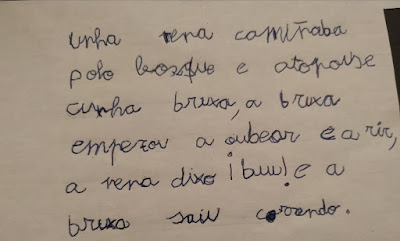 Unha rena camiñaba
polo bosque e atopouse
cunha bruxa, a bruxa
empezou a oubear e a rir,
a rena dixo ¡buu! e a
bruxa saiu correndo.